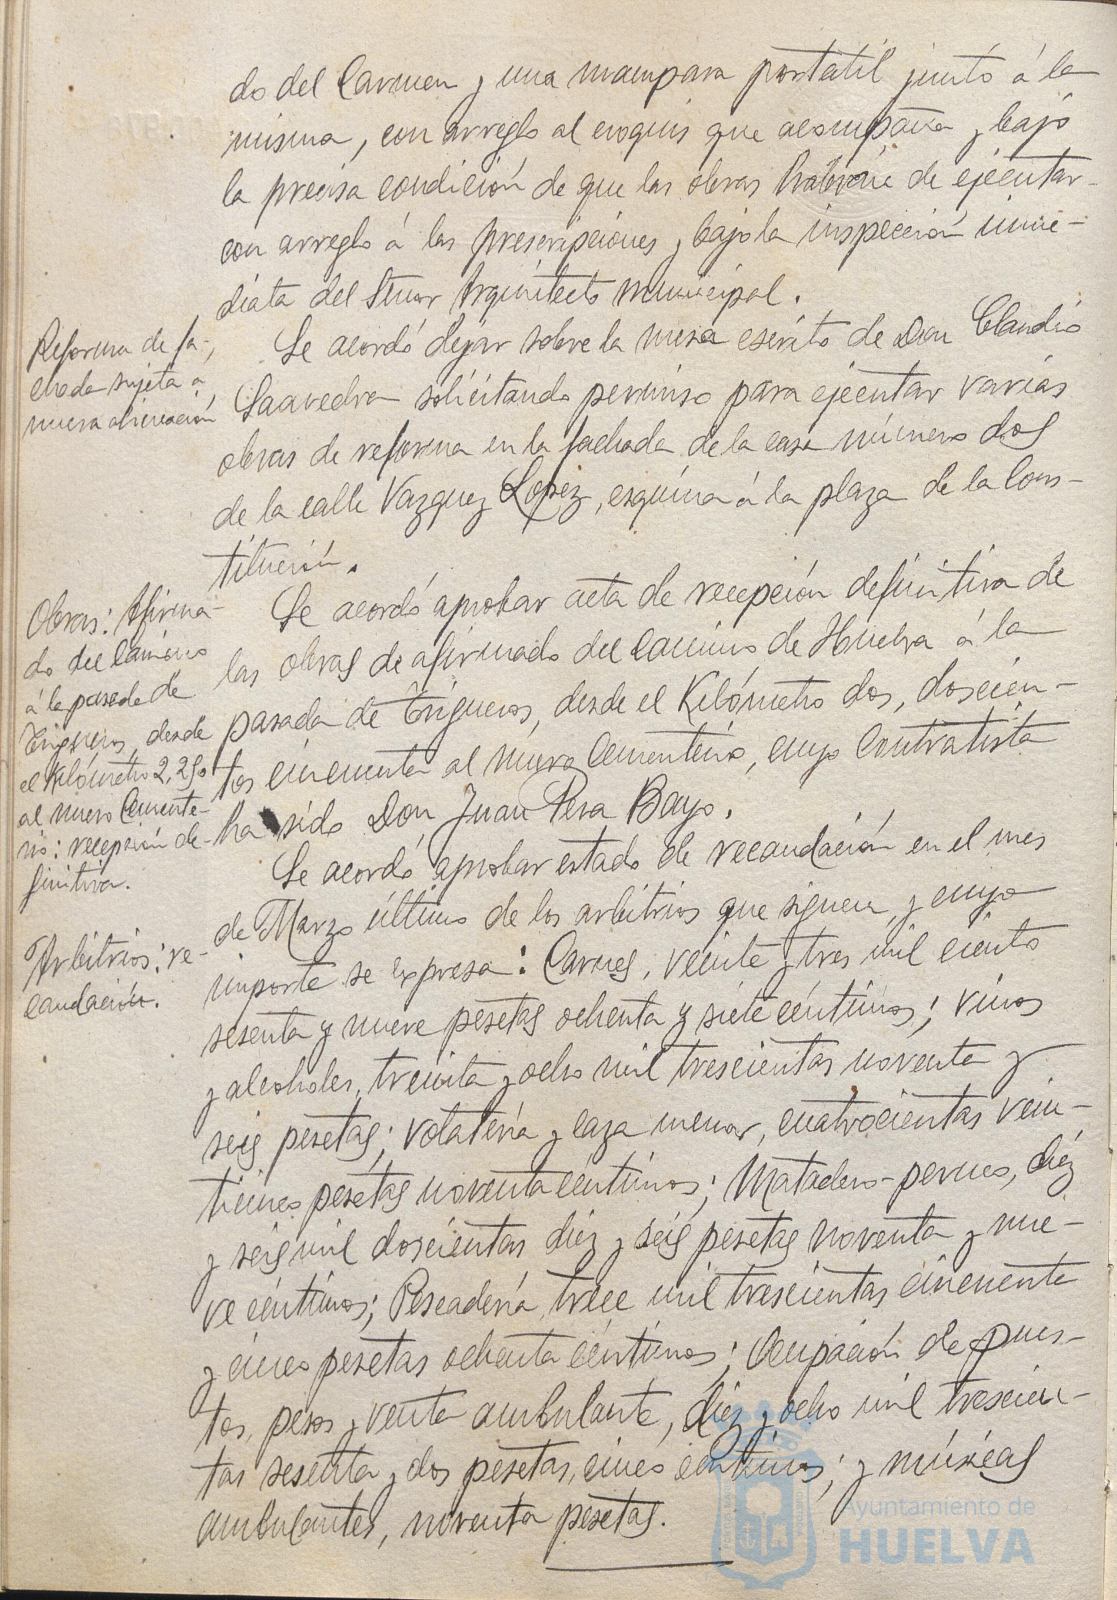 do del Carmen y una mampara portátil junto á la
misma, con arreglo al croquis que acompaña y bajo
la precisa condición de que las obras habrán de ejecutar-
con arreglo á las prescripciones y bajo la inspección inme-
diata del Señor Arquitecto municipal.
Reforma de fa-
chada sujeta á
nueva alineación
Se acordó dejar sobre la mesa escrito de Don Claudio
Saavedra solicitando permiso para ejecutar varias
obras de reforma en la fachada de la casa número dos
de la calle Vazquez Lopez, esquina á la plaza de la Cons-
titución.
Obras: Afirma-
do del Camino
á la pasada de
Trigueros, desde
el Kilómetro 2,250
al nuevo Cemente-
rio: recepción de-
finitiva.
Se acordó aprobar acta de recepción definitiva de
las obras de afirmado del camino de Huelva á la
pasada de Trigueros, desde el Kilómetro dos, doscien-
tos cincuenta al nuevo Cementerio, cuyo contratista
ha sido Don Juan Pera Bayo.
Arbitrios: re-
caudación.
Se acordó aprobar estado de recaudación en el mes
de Marzo último de los arbitrios que siguen y cuyo
importe se expresa: Carnes, veinte y tres mil ciento
sesenta y nueve pesetas ochenta y siete céntimos; vinos
y alcoholes, treinta y ocho mil trescientas noventa y
seis pesetas; volatería y caza menor, cuatrocientas vein-
ticinco pesetas noventa céntimos; Matadero-perneo, diéz
y seis mil doscientas diéz y seis pesetas noventa y nue-
ve céntimos; Pescadería, trece mil trescientas cincuenta
y cinco pesetas ochenta céntimos; Ocupación de pues-
tos, pesos y venta ambulante, diéz y ocho mil trescien-
tas sesenta y dos pesetas, cinco céntimos; y músicas
ambulantes, noventa pesetas.
Ayuntamiento de
HUELVA